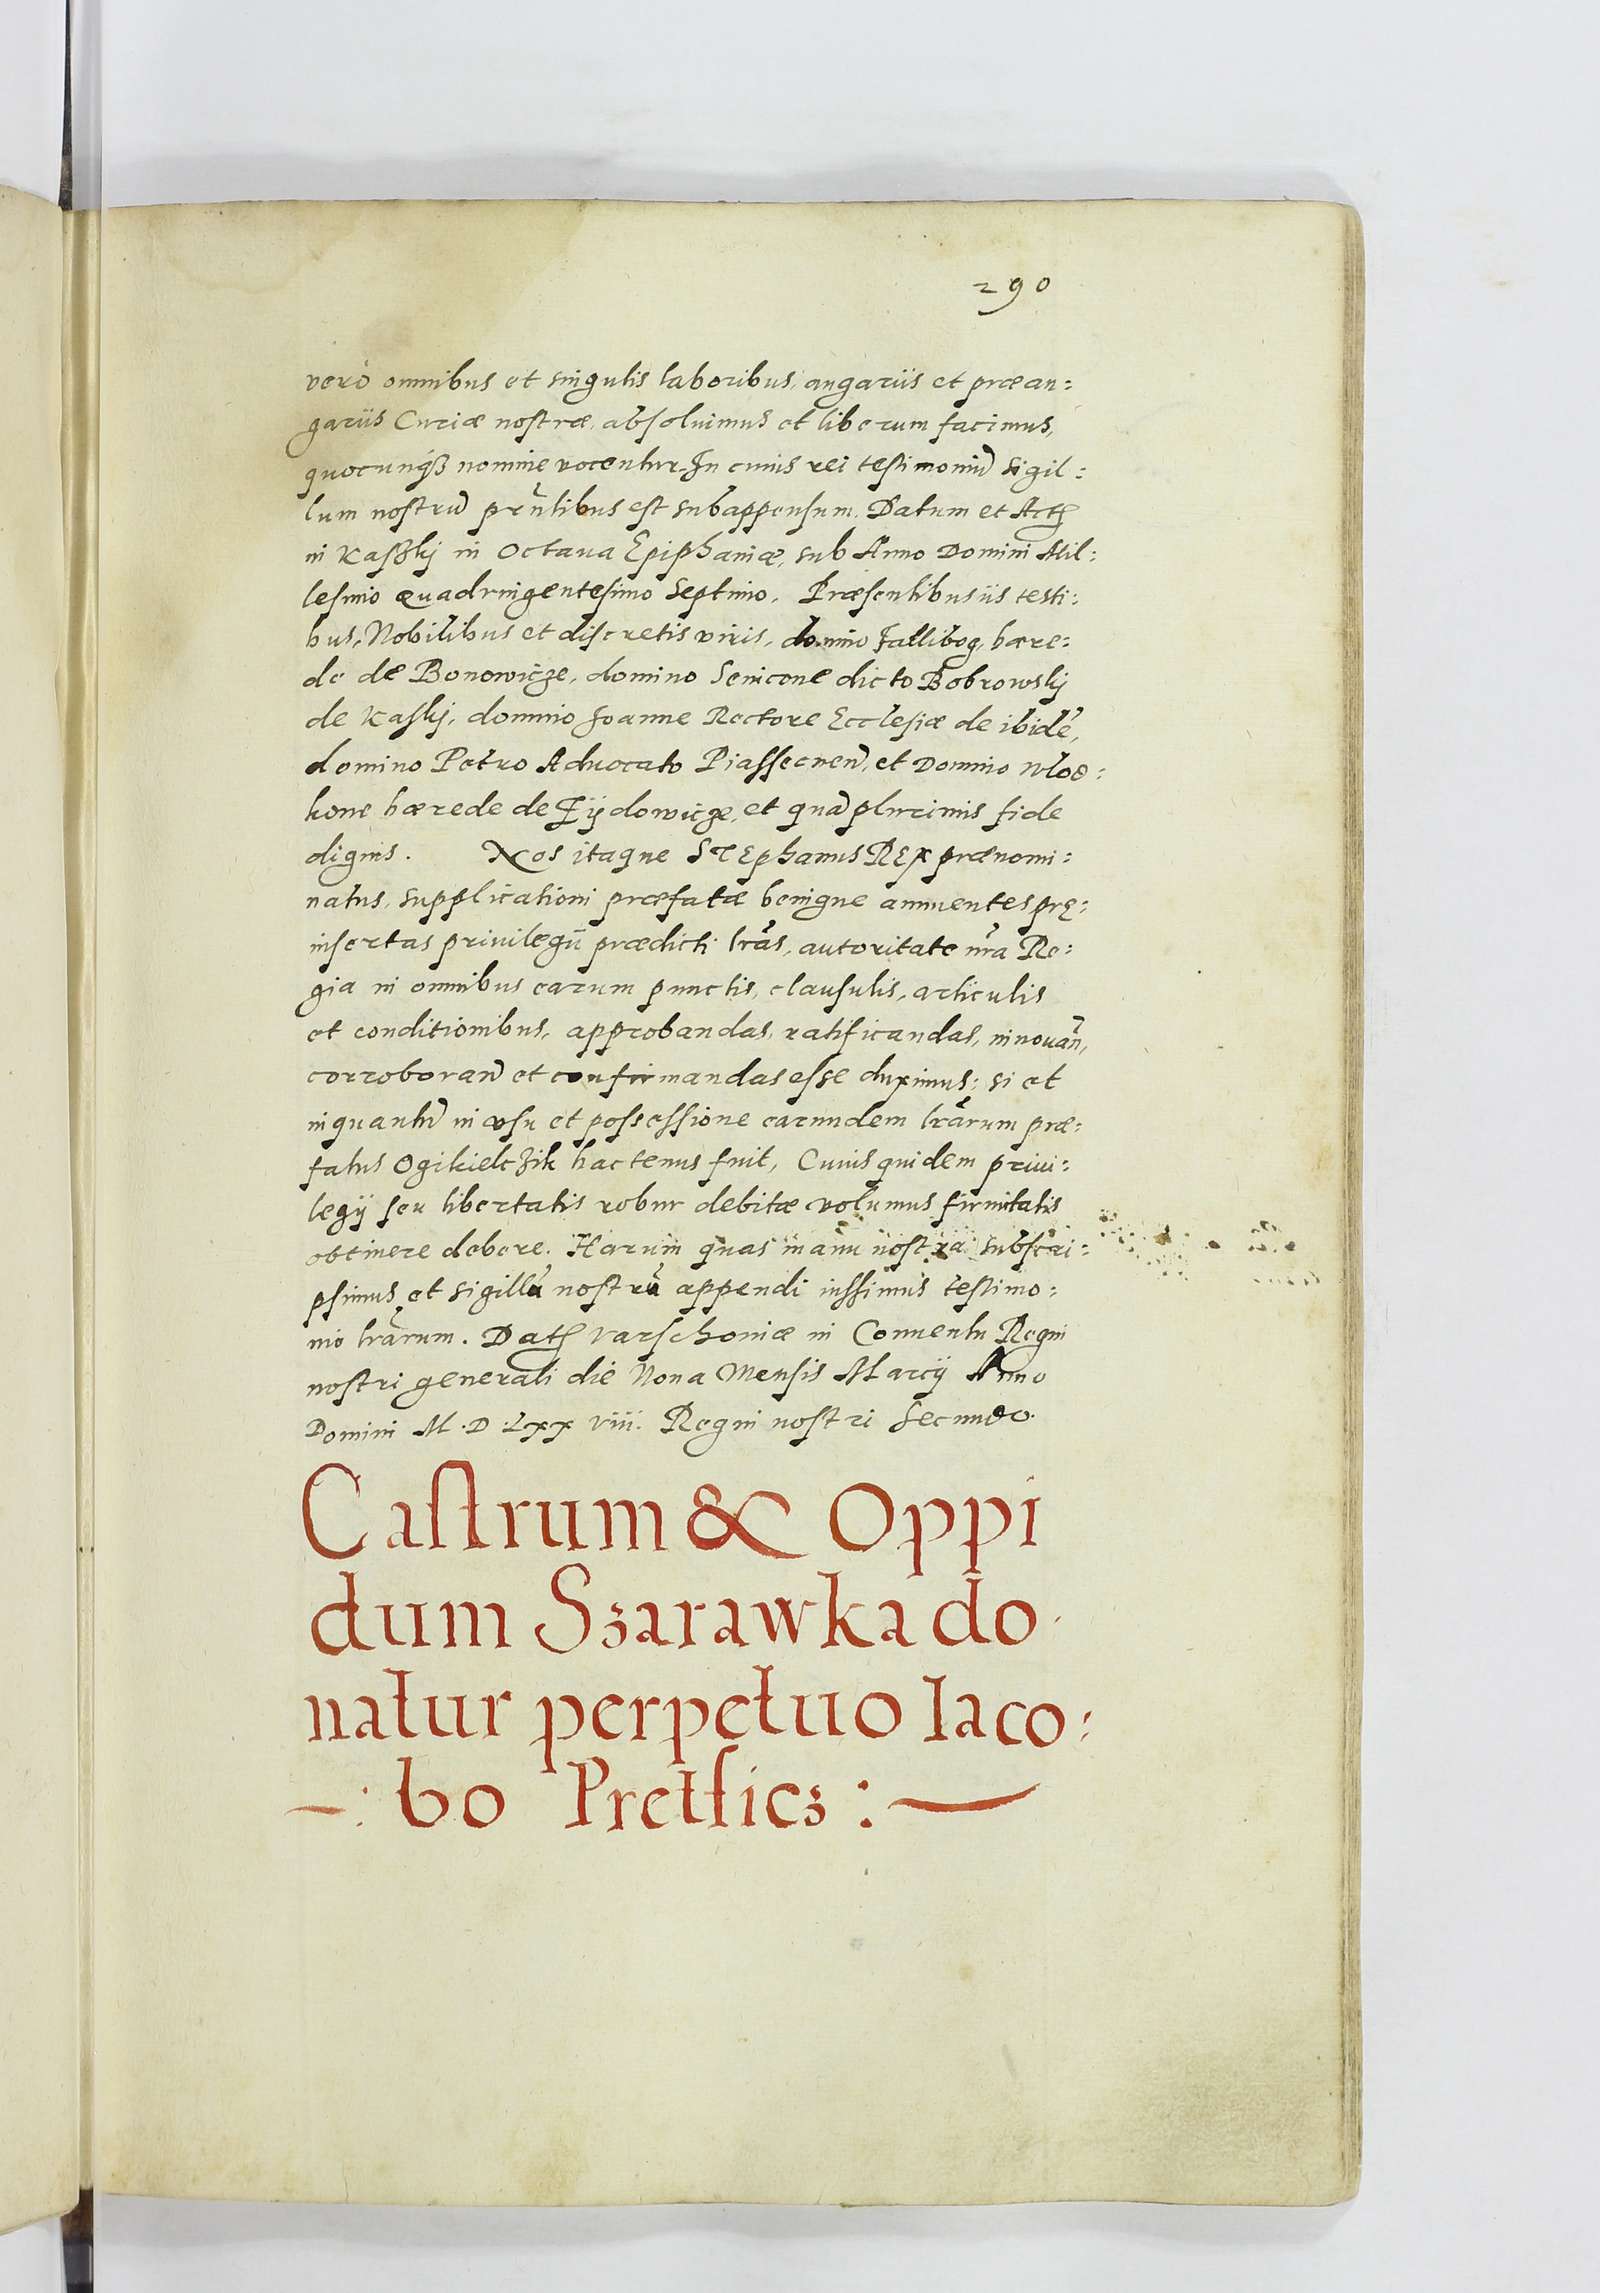 290
verò omnibus et singulis laboribus, angariis et præan:
gariis Curiæ nostræ, absoluimus et liberum facimus,
quocunqꝫ nomine vocentur. In cuius rei testimoniũ sigil:
lum nostrũ pr̃ntibus est subappensum. Datum et Actꝭ
in KasZkij in Octaua Epiphaniæ, sub Anno Domini Mil:
lesimo quadringentesimo Septimo. Præsentibus iis testi:
bus, Nobilibus et discretis viris, domino Fallibog, hære:
de de Bonowicze, domino Senicone dicto Bobrowskij
de Kaskij, domino Joanne Rectore Ecclesiæ de ibidẽ,
domino Petro Aduocato Piassecneñ, et Domino Wlod:
kone hærede de Zÿdowicze, et quã plurimis fide
dignis. Nos itaque STEphanus REX prænomi:
natus, supplicationi præfatæ benigne annuentes pre:
insertas priuilegii prædicti lr̃as, autoritate nr̃a Re:
gia in omnibus earum punctis, clausulis, articulis
et conditionibus, approbandas, ratificandas, innouañ,
corroborañ et confirmandas esse duximus: si et
inquantũ in vsu et possessione earundem lr̃arum præ:
fatus OgikielcZik hactenus fuit, Cuius quidem priui:
legij seu libertatis robur debitæ volumus firmitatis
obtinere debere. Harum quas manu nostra subscri:
psimus et sigillũ nostrũ appendi iussimus testimo:
nio lr̃arum. Datꝭ Varschouiæ in Conuentu Regni
nostri generali die Nona Mensis Marcij Anno
Domini M. D. LXX VIII. Regni nostri Secundo.
Castrum & Oppi
dum Szarawka do
natur perpetuo Iaco:
bo Pretficz :